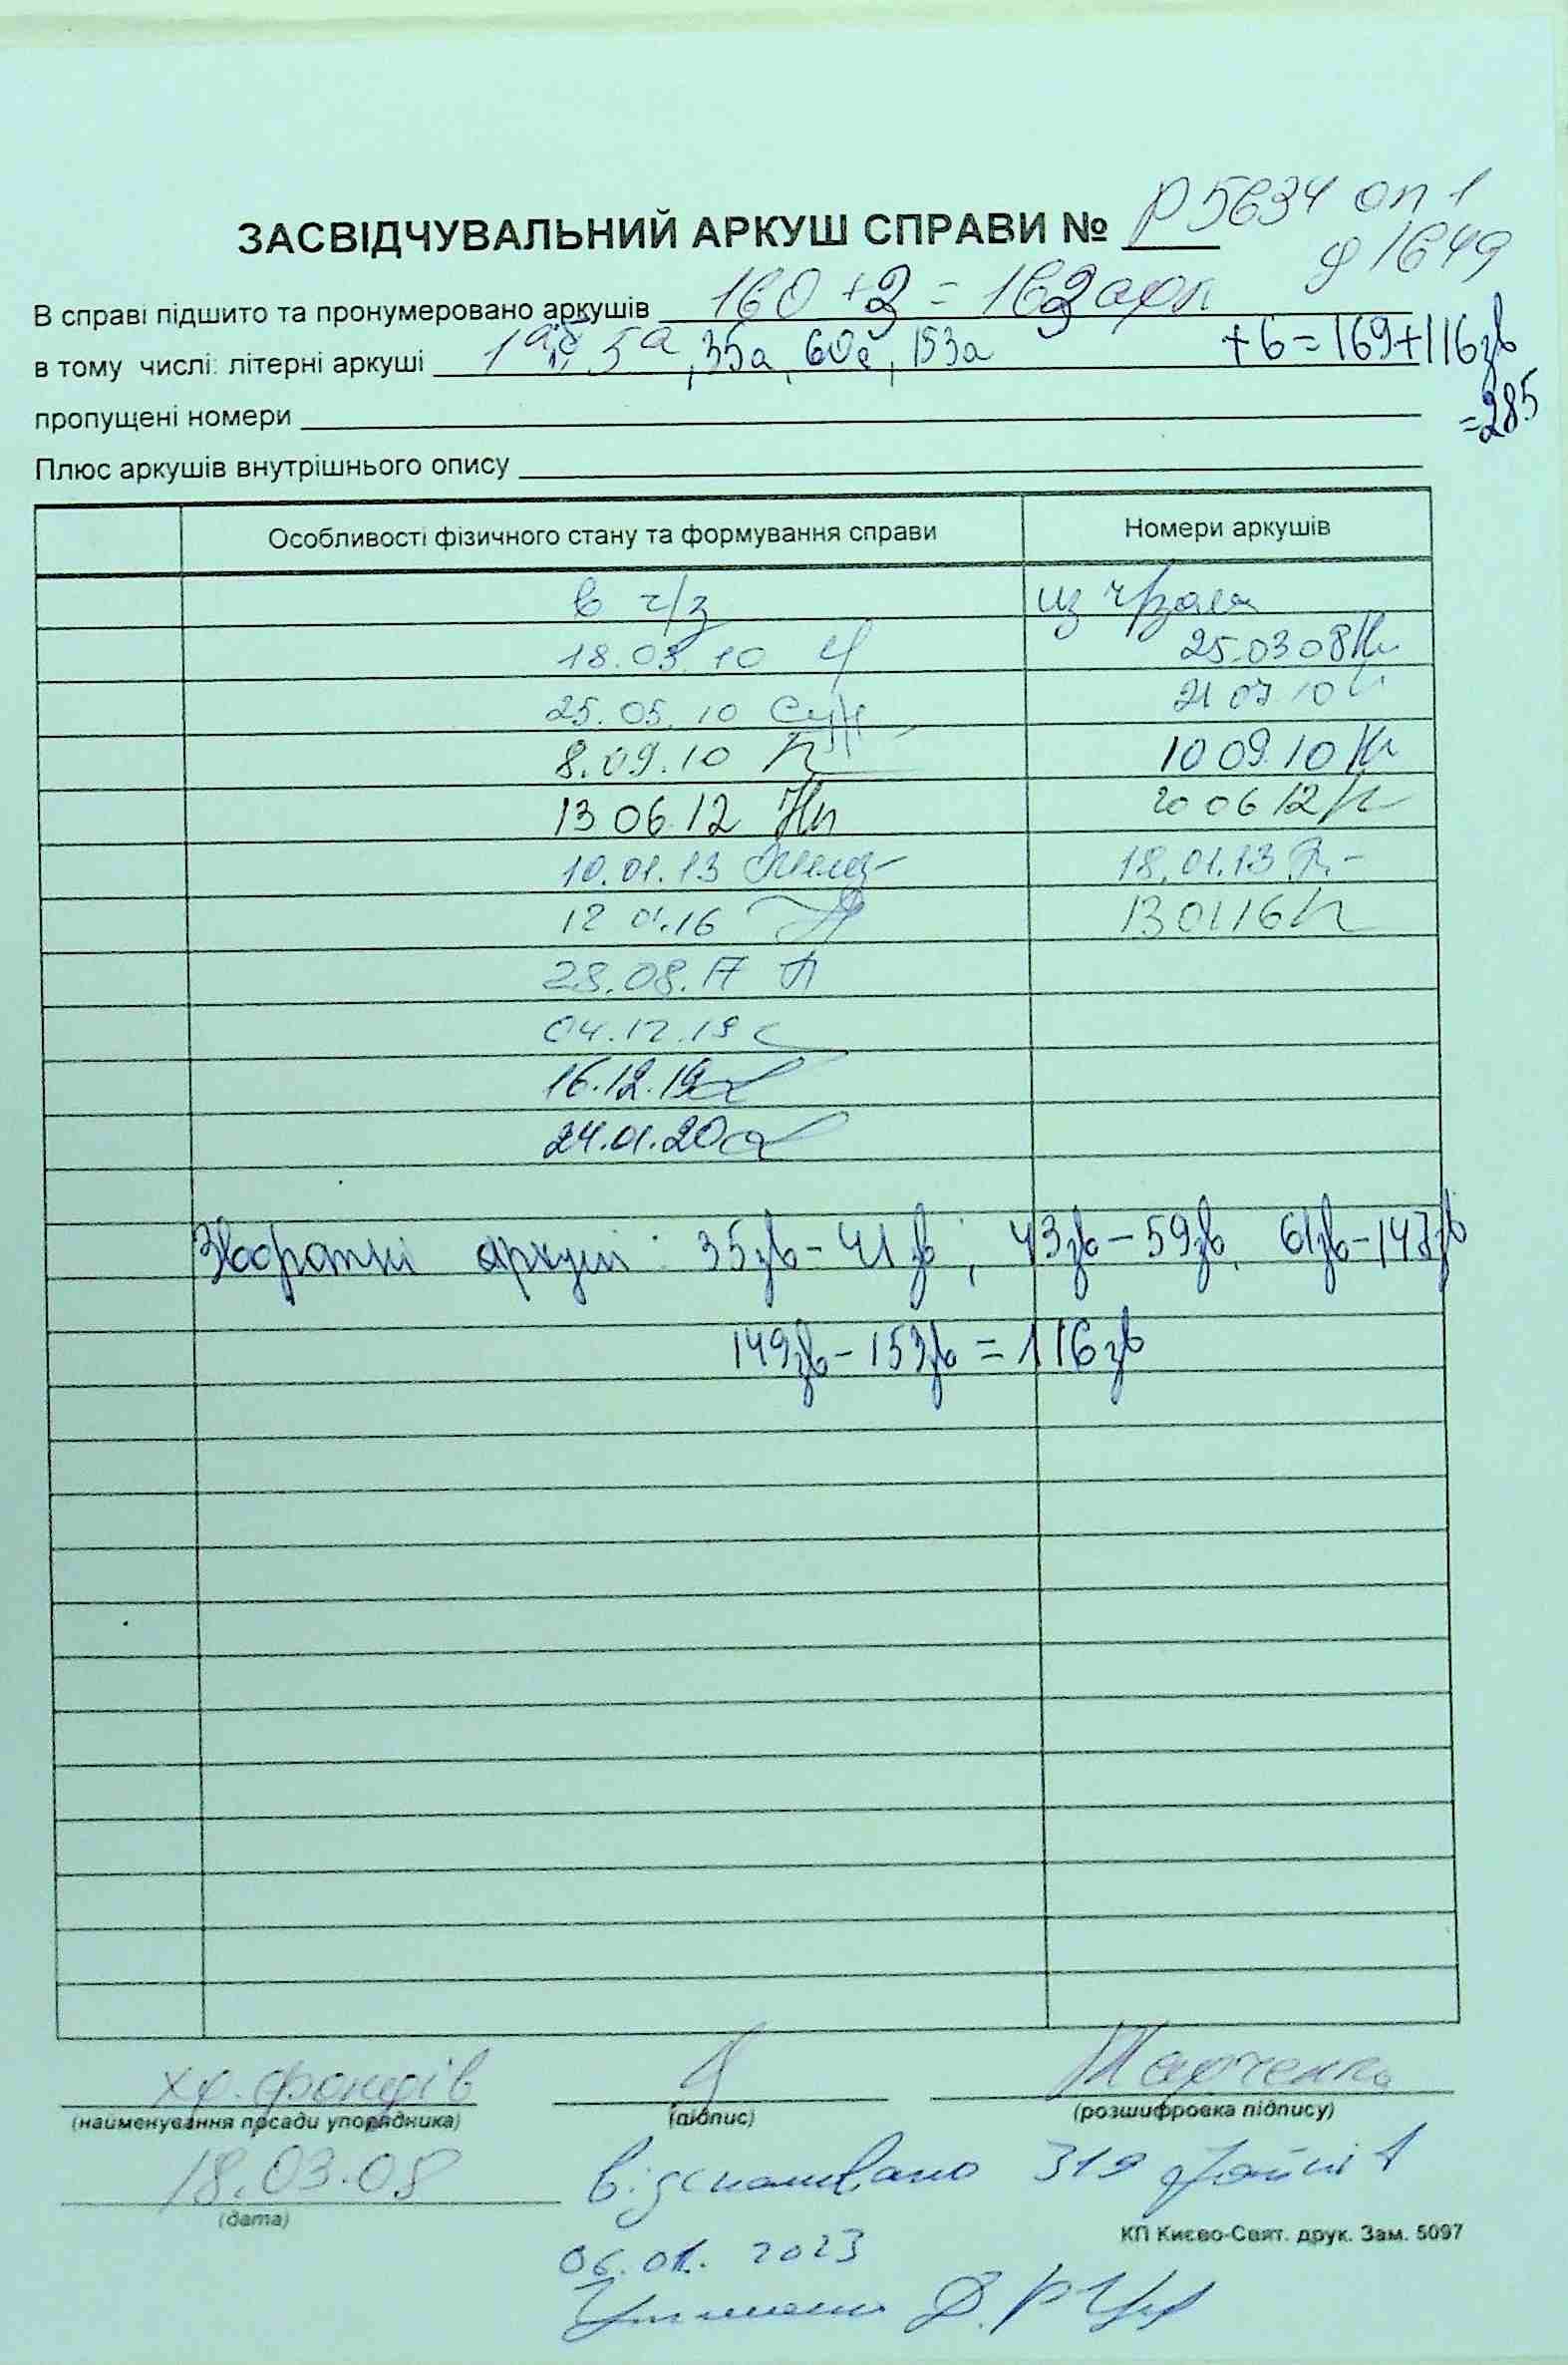 ЗАСВІДЧУВАЛЬНИЙ АРКУШ СПРАВИ № Р5634 оп 1
д 1649
В справі підшито та пронумеровано аркушів 160 +3 = 163 арк
в тому числі: літерні аркуші 1а,б, 5а, 35а, 60а, 153а +6=169+116зв
=285
пропущені номери
Плюс аркушів внутрішнього опису
Особливості фізичного стану та формування справи Номери аркушів
в ч/з из ч/зала
18.03.10 25.03.08
25.05.10 21.07.10
8.09.10 10 09.10
13 06.12 20 06 12
10.01.13 18.01.13
12 01.16 13 01 16
28.08.17
04.12.19
16.12.19
24.01.20
Зворотні аркуші: 35зв-41зв; 43зв-59зв, 61зв-147зв
149зв-153зв = 116зв
хр. фондів Марченко
(найменування посади упорядника) (підпис) (розшифровка підпису)
18.03.08 відскановано 319 файлів
(дата)
КП Києво-Свят. друк. Зам. 5097
06.01.2023